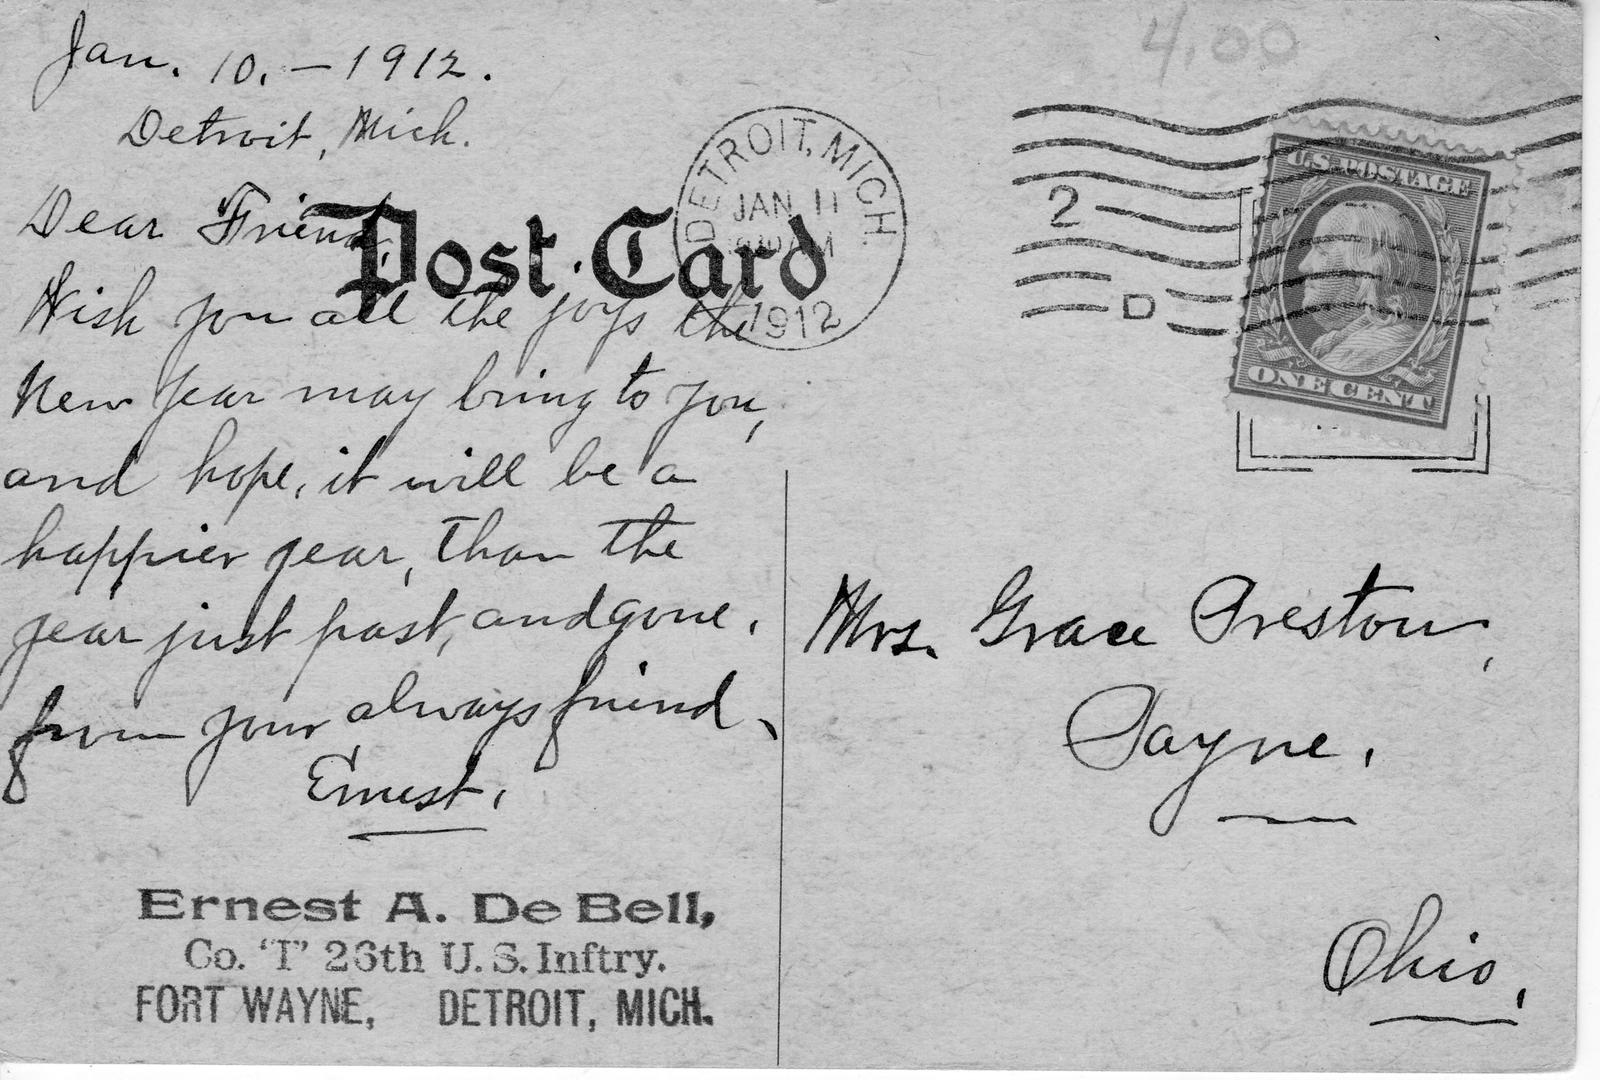 4.00
Jan. 10. – 1912.
Detroit, Mich.
Dear Friend,
Post Card
DETROIT, MICH.
JAN 11
1912
2
D
U.S. POSTAGE
ONE CENT
Wish you all the joys the
New Year may bring to you,
and hope, it will be a
happier year, than the
year just past, and gone.
from your always friend,
Ernest.
Ernest A. De Bell,
Co. 'I' 26th U. S. Inftry.
FORT WAYNE, DETROIT, MICH.
Mrs. Grace Preston,
Payne.
Ohio,